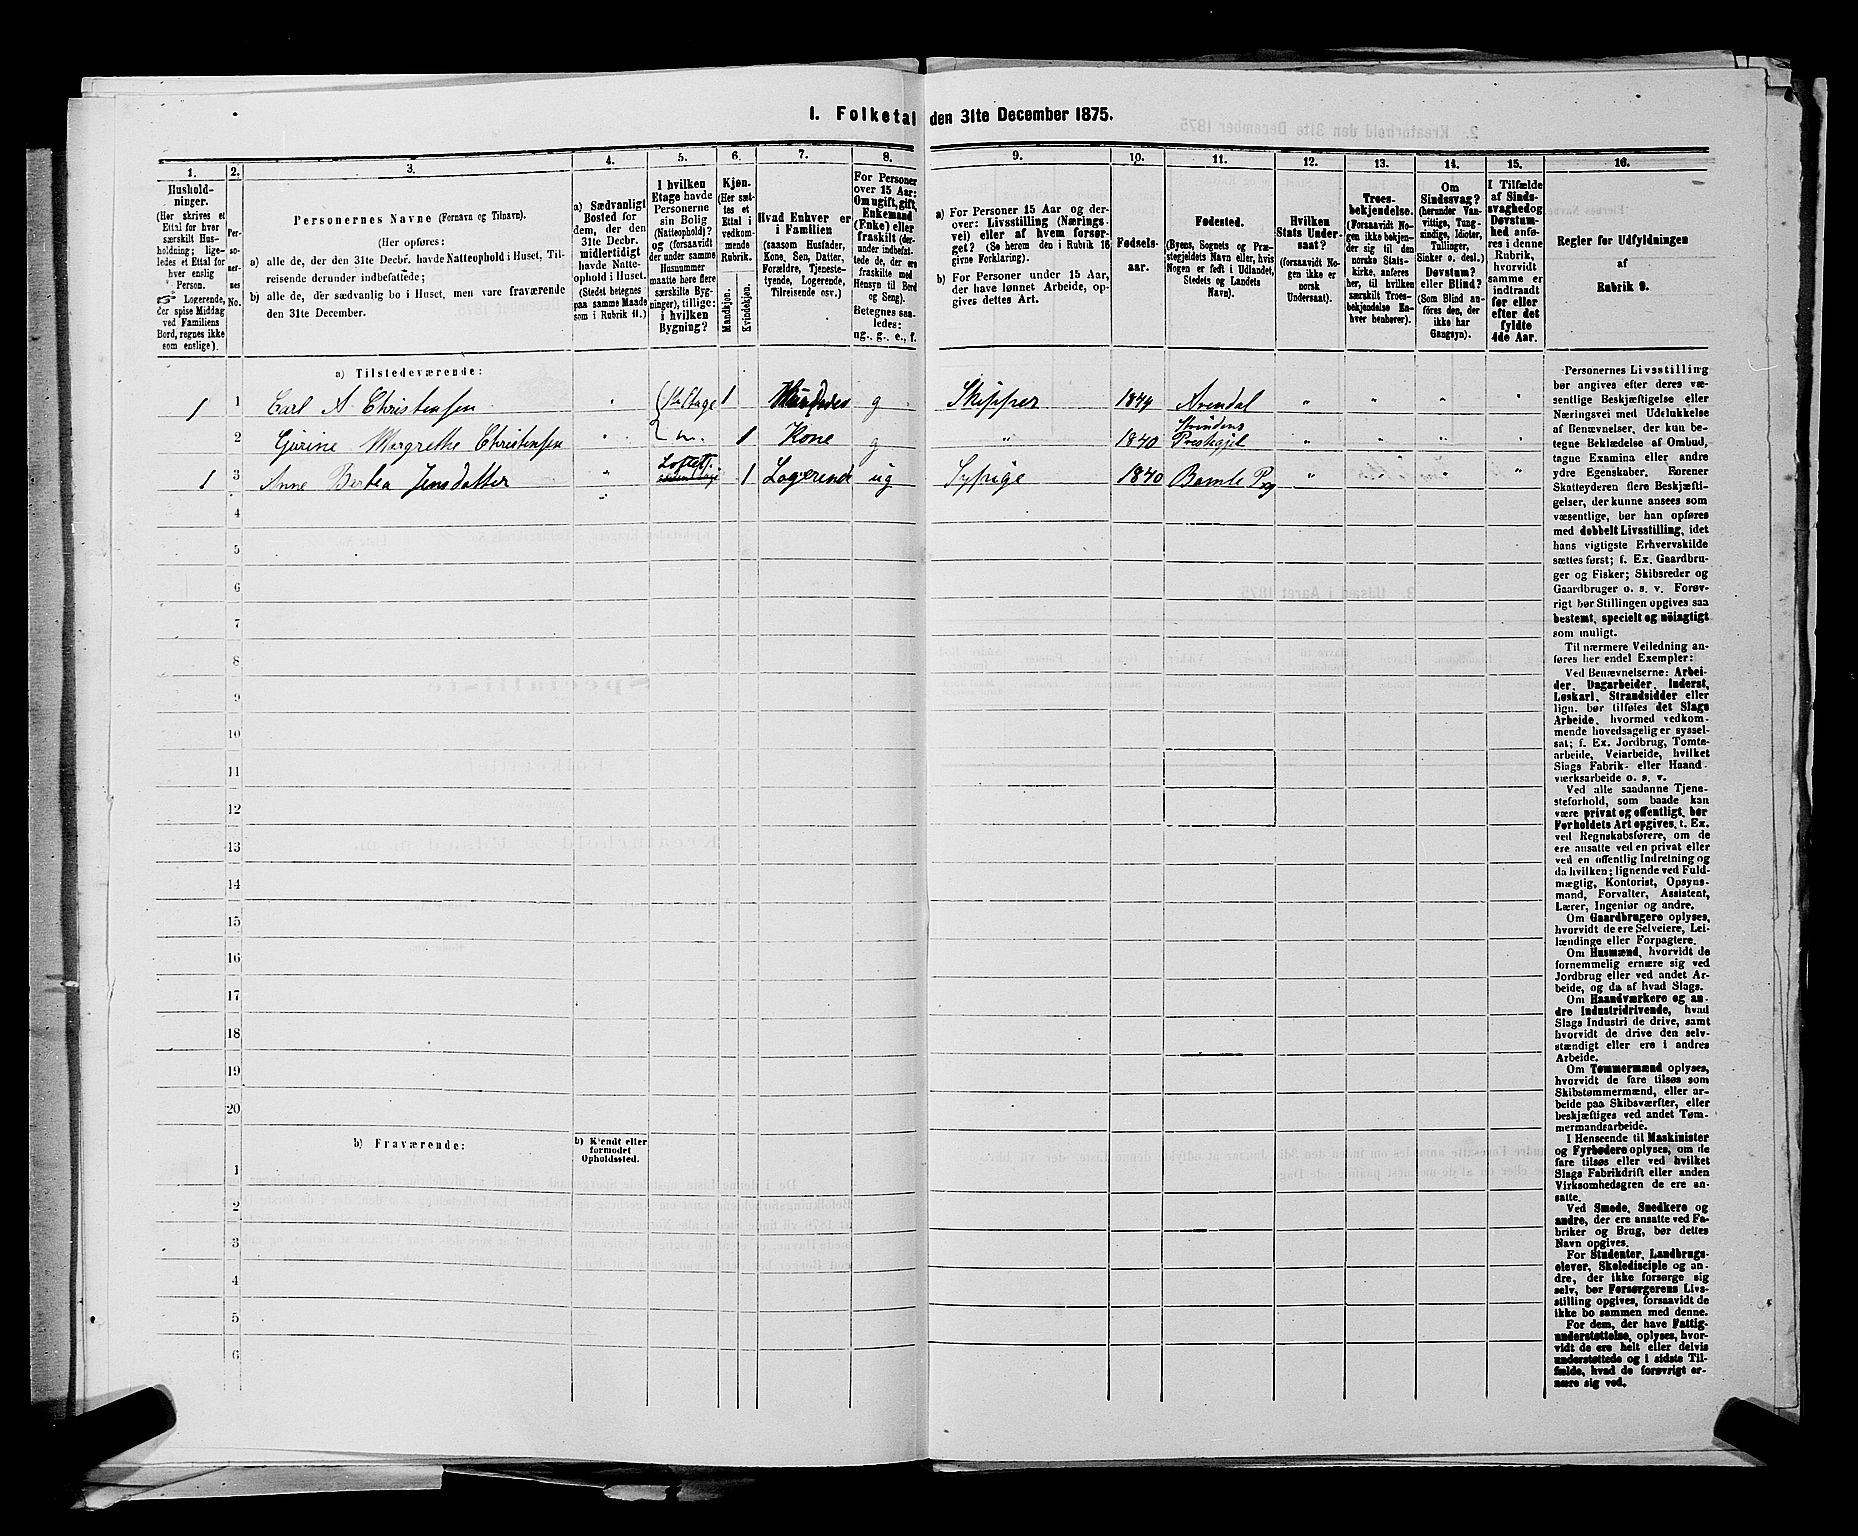 I. Folketal den 31te December 1875.
1.
2.
3.
4.
5.
6.
7.
8.
9.
10.
11.
12.
13.
14.
15.
16.
Hushold-
ninger.
(Her skrives et
Ettal for hver
særskilt Hus-
holdning; lige-
ledes et Ettal for
hver enslig
Person.
☞ Logerende,
der spise Middag
ved Familiens
Bord, regnes ikke
som enslige).
Per-
so-
ner-
nes
No.
Personernes Navne (Fornavn og Tilnavn).
(Her opføres:
a) alle de, der den 31te Decbr. havde Natteophold i Huset, Til-
reisende derunder indbefattede;
b) alle de, der sædvanlig bo i Huset, men vare fraværende
den 31te December.
a) Sædvanligt
Bosted for
dem, der den
31te Decbr.
midlertidigt
havde Natte-
ophold i Huset.
(Stedet betegnes
paa samme Maade
som i Rubrik 11.)
I hvilken
Etage havde
Personerne
sin Bolig
(Natteophold)?
og (forsaavidt
der under samme
Husnummer
maatte høre flere
særskilte Byg-
ninger), tillige:
i hvilken
Bygning?
Kjøn.
(Her sæt-
tes et
Ettal i
vedkom-
mende
Rubrik.
Mandkjøn.
Kvindekjøn.
Hvad Enhver er
i Familien
(saasom Husfader,
Kone, Søn, Datter,
Forældre, Tjeneste-
tyende, Logerende,
Tilreisende osv.)
For Personer
over 15 Aar:
Om ugift, gift,
Enkemand
(Enke) eller
fraskilt (der-
under indbefat-
tede de, der ere
fraskilte med
Hensyn til Bord
og Seng).
Betegnes saa-
ledes:
ug., g., e., f.
a) For Personer 15 Aar og der-
over: Livsstilling (Nærings-
vei) eller af hvem forsør-
get? (Se herom den i Rubrik 16
givne Forklaring).
b) For Personer under 15 Aar,
der have lønnet Arbeide, op-
gives dettes Art.
Fødsels-
aar.
Fødested.
(Byens, Sognets og Præ-
stegjeldets Navn eller, hvis
Nogen er født i Udlandet,
Stedets og Landets
Navn).
Hvilken
Stats Under-
saat?
(forsaavidt No-
gen ikke er
norsk
Undersaat).
Troes-
bekjendelse.
(Forsaavidt No-
gen ikke bekjen-
der sig til den
norske Stats-
kirke, anføres
her, til hvilken
særskilt Troes-
bekjendelse En-
hver henhører).
Om
Sindssvag?
(herunder Van-
vittige, Tung-
sindige, Idioter,
Tullinger,
Sinker o. desl.)
Døvstum?
eller Blind?
(Som Blind an-
føres den, der
ikke har
Gangsyn).
I Tilfælde
af Sinds-
svaghed og
Døvstum-
hed anfø-
res i denne
Rubrik,
hvorvidt
samme er
indtraadt
før eller
efter det
fyldte
4de Aar.
Regler for Udfyldningen
af
Rubrik 9.
a) Tilstedeværende:
1 1 Carl A Christensen " 1ste Etage 1 g Skipper Arendal " " " "
2 Gurine Margrethe Christensen " " 1 Kone g " 1840 Præstegjel " " " "
1 3 Anne Bertea Jensdatter " Loftet 1 Logerende ug Sypige 1840 Bamle Prg " " "
4
5
6
7
8
9
10
11
12
13
14
15
16
17
18
19
20
b) Fraværende:
b) Kjendt eller
formodet
Opholdssted.
1
2
3
4
5
6
Personernes Livsstilling
bør angives efter deres væ-
sentlige Beskjæftigelse eller
Næringsvei med Udelukkelse
af Benævnelser, der kun be-
tegne Beklædelse af Ombud,
tagne Examina eller andre
ydre Egenskaber. Forener
Skatteyderen flere Beskjæfti-
gelser, der kunne ansees som
væsentlige, bør han opføres
med dobbelt Livsstilling, idet
hans vigtigste Erhvervskilde
sættes først; f. Ex. Gaardbru-
ger og Fisker; Skibsreder og
Gaardbruger o. s. v. Forøv-
rigt bør Stillingen opgives saa
bestemt, specielt og nöiagtigt
som muligt.
Til nærmere Veiledning an-
føres her endel Exempler:
Ved Benævnelserne: Arbei-
der, Dagarbeider, Inderst,
Løskarl, Strandsidder eller
lign. bør tilføies det Slags
Arbeide, hvormed vedkom-
mende hovedsagelig er syssel-
sat; f. Ex. Jordbrug, Tomte-
arbeide, Veiarbeide, hvilket
Slags Fabrik- eller Haand-
værksarbeide o. s. v.
Ved alle saadanne Tjene-
steforhold, som baade kan
være privat og offentligt, bør
Forholdets Art opgives, t. Ex.
ved Regnskabsførere, om de
ere ansatte ved en privat eller
ved en offentlig Indretning og
da hvilken; lignende ved Fuld-
mægtig, Kontorist, Opsyns-
mand, Forvalter, Assistent,
Lærer, Ingeniør og andre.
Om Gaardbrugere oplyses,
hvorvidt de ere Selveiere, Lei-
lændinge eller Forpagtere.
Om Husmænd, hvorvidt de
fornemmelig ernære sig ved
Jordbrug eller ved andet Ar-
beide, og da af hvad Slags.
Om Haandværkere og an-
dre Industridrivende, hvad
Slags Industri de drive, samt
hvorvidt de drive den selv-
stændigt eller ere i andres
Arbeide.
Om Tømmermænd oplyses,
hvorvidt de fare tilsøs som
Skibstømmermænd, eller ar-
beide paa Skibsværfter, eller
beskjæftiges ved andet Tøm-
mermandsarbeide.
I Henseende til Maskinister
og Fyrbødere oplyses, om de
fare tilsøs eller ved hvilket
Slags Fabrikdrift eller anden
Virksomhedsgren de ere an-
satte.
Ved Smede, Snedkere og
andre, der ere ansatte ved Fa-
briker og Brug, bør dettes
Navn opgives.
For Studenter, Landbrugs-
elever, Skoledisciple og an-
dre, der ikke forsørge sig
selv, bør Forsørgerens Livs-
stilling opgives, forsaavidt de
ikke bo sammen med denne.
For dem, der have Fattig-
understøttelse, oplyses, hvor-
vidt de ere helt eller delvis
understøttede og i sidste Til-
fælde, hvad de forøvrigt er-
nære sig ved.